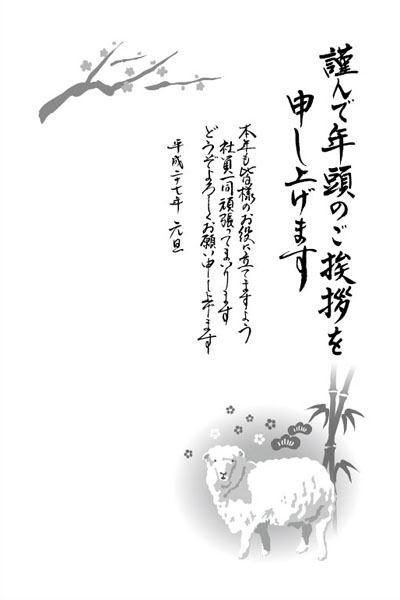 謹んで年頭のご挨拶を
申し上げます
本年も皆様のお役に立てますよう
社員一同頑張ってまいります
どうぞよろしくお願い申し上げます
平成二十七年 元旦